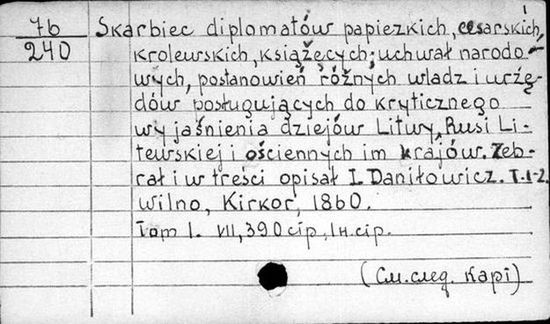 76
240
Skarbiec diplomatów papiezkich, cesarskich,
krolewskich, książęcych; uchwał narodo-
wych, postanowień różnych wladz i urzę-
dów posługujących do krytycznego
wyjaśnienia dziejów Litwy, Rusi Li-
tewskiej i ościennych im krajów. Zeb-
rał i w treści opisał I. Daniłowicz. T.1-2.
wilno, Kirkor, 1860.
Tom 1. VII, 390 cip, 1н. cip.
(См. след. карт)